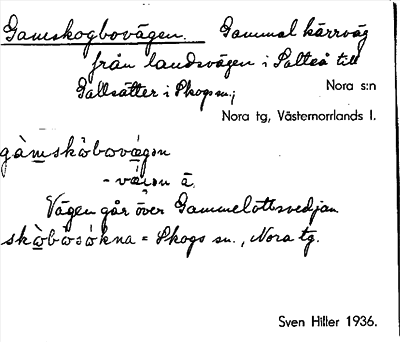 Gamskogbovägen. Gammal kärrväg
från landsvägen i Salteå till
Gallsätter i Skogsm.;
Nora s:n
Nora tg, Västernorrlands l.
gàmskòbωvägən
- väʒən ä.
Vägen går över Gammelottsvedjan
skòbωsókna = Skogs sn., Nora tg.
Sven Hiller 1936.